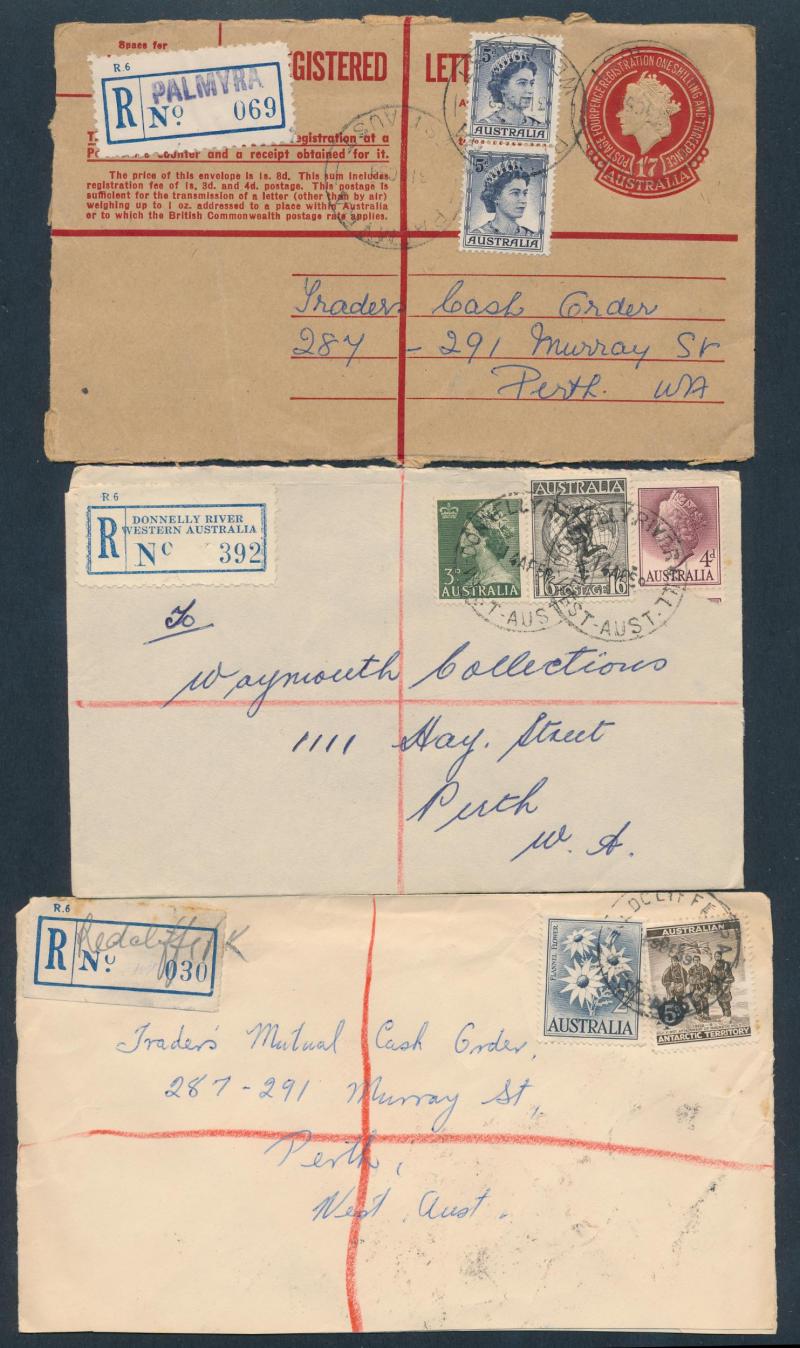 Space for
R.6
R PALMYRA
No 069
GISTERED LETT
5D
AUSTRALIA
5D
AUSTRALIA
POSTAGE FOURPENCE REGISTRATION ONE SHILLING AND THREEPENCE
1'7
AUSTRALIA
registration at a
counter and a receipt obtained for it.
The price of this envelope is 1s. 8d. This sum includes
registration fee of 1s. 3d. and 4d. postage. This postage is
sufficient for the transmission of a letter (other than by air)
weighing up to 1 oz. addressed to a place within Australia
or to which the British Commonwealth postage rate applies.
PALMYRA
Traders Cash Order
287 - 291 Murray St
Perth. WA
R 6
R DONNELLY RIVER
WESTERN AUSTRALIA
No 392
3D
AUSTRALIA
AUSTRALIA
1/6 POSTAGE 1/6
4d
AUSTRALIA
DONNELLY RIVER MILL
WEST-AUST.
14AP
To
Waymouth Collections
1111 Hay. Street
Perth
W. A.
R.6
R Redcliffe
No 030
FLANNEL FLOWER
2/-
AUSTRALIA
AUSTRALIAN
5D
ANTARCTIC TERRITORY
Traders Mutual Cash Order,
287-291 Murray St,
Perth,
West. Aust.